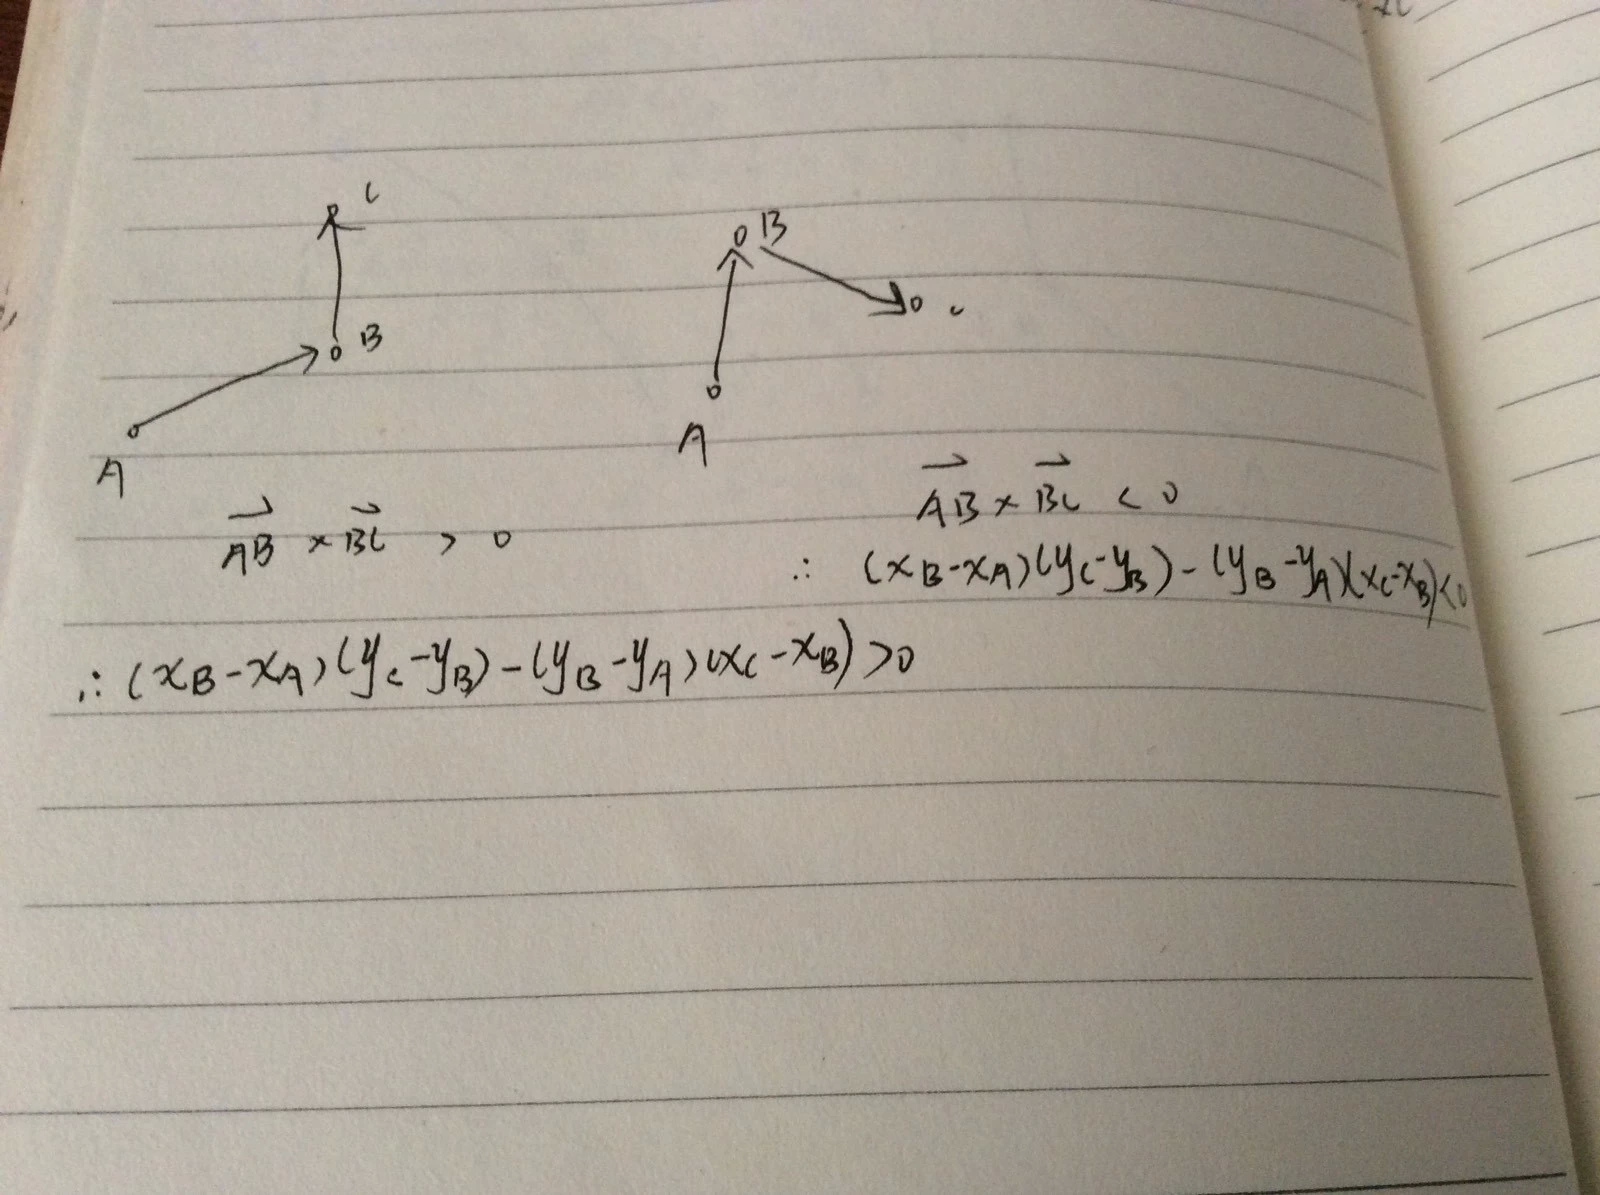 C
B
A
B
C
A
→AB × →BC > 0
∴ (xB-xA)(yC-yB)-(yB-yA)(xC-xB)>0
→AB × →BC < 0
∴ (xB-xA)(yC-yB)-(yB-yA)(xC-xB)<0